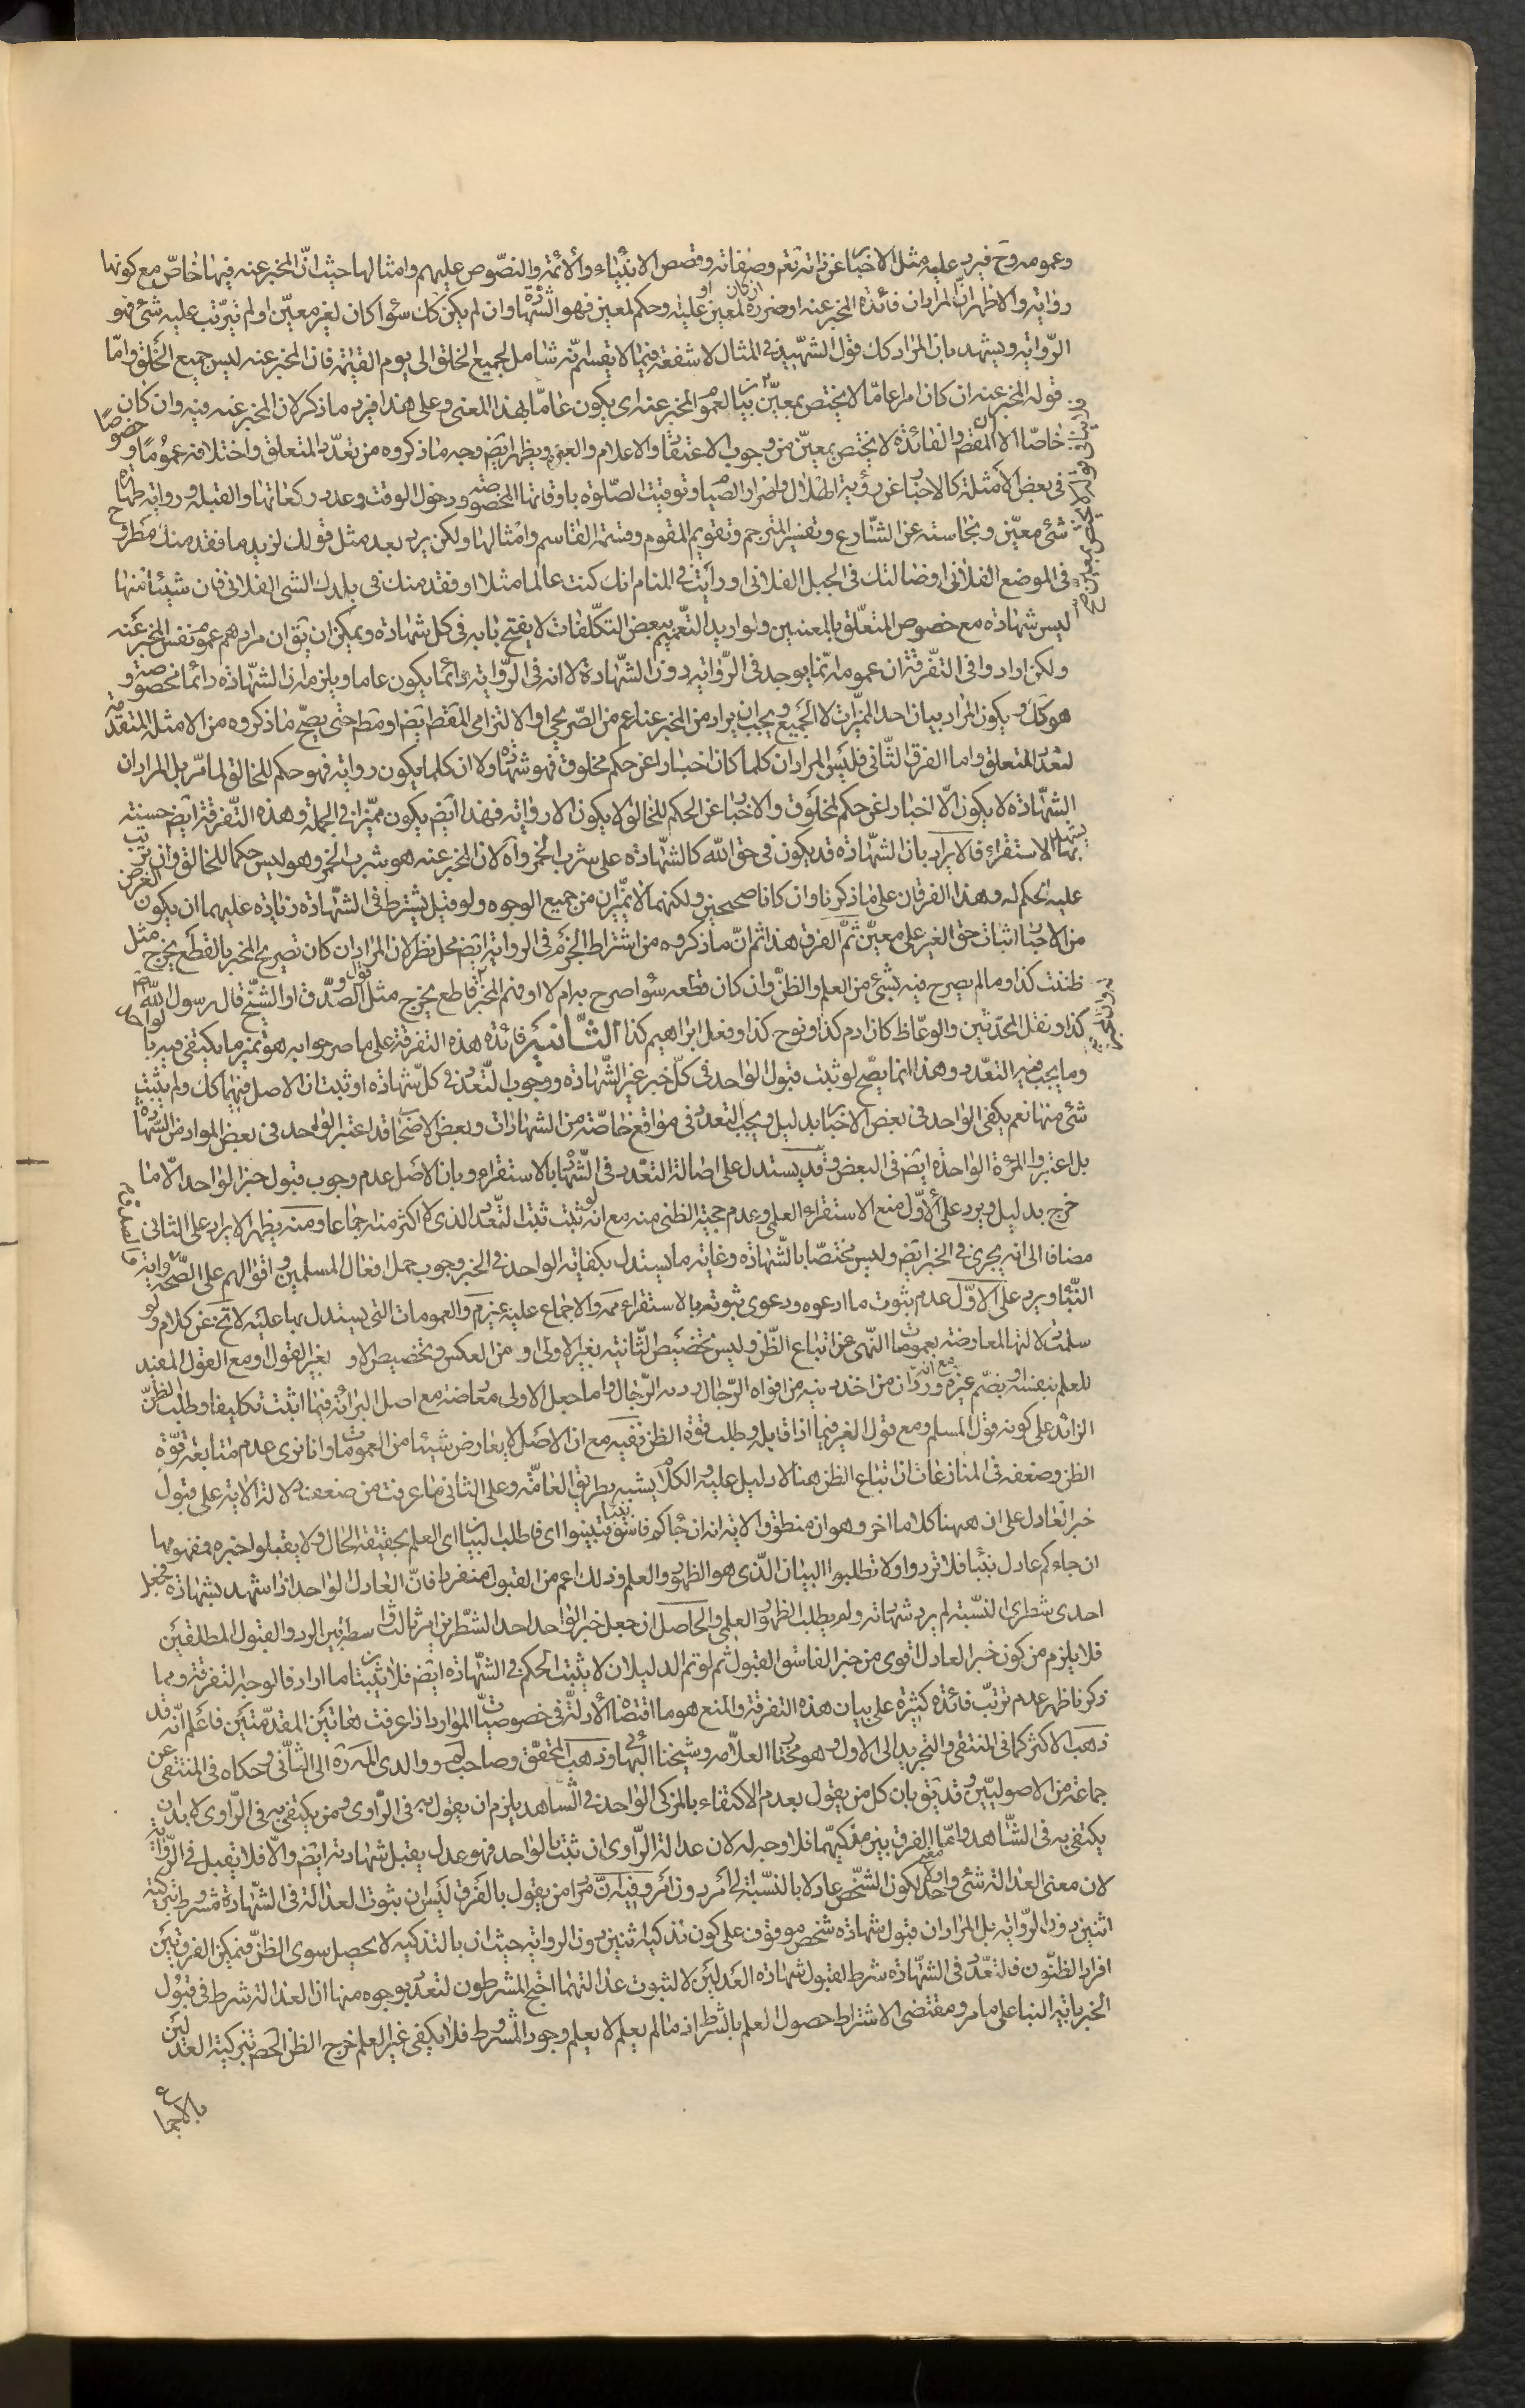 وعمومه وح فيرد عليه مثل الاخبار عن ذاته تعم وصفاته وقصص الانبياء والائمة والنصوص عليهم وامثالها حيث ان المخبر عنه فيها خاص مع كونها
رواية والاظهر ان المراد ان فائدة المخبر عنه او ضرره ان كان لمعين او عليه وحكم لمعين فهو الشهادة وان لم يكن كك سواء كان لغير معين او لم يترتب عليه شئ فهو
الرواية ويشهد بان المراد كك قول الشهيد في المثال لا شفعة فيما لا يقسم انه شامل لجميع الخلق الى يوم القيمة فان المخبر عنه ليس جميع الخلق واما
قوله المخبر عنه ان كان امرا عاما لا يختص بمعين بيان لعموم المخبر عنه اي يكون عاما بهذا المعنى وعلى هذا فيرد ما ذكر لان المخبر عنه فيه وان كان
خاصا الا ان المقصود والفائدة لا يختص بمعين من وجوب الاعتقاد والاعلام والعبرة ويظهر ايضا وجه ما ذكروه من تعدد المتعلق واختلافه عموما وخصوصا
في بعض الامثلة كالاخبار عن رؤية الهلال واضرار الصيام وتوقيت الصلوة باوقاتها المخصوصة ودخول الوقت وعدد ركعاتها والقبلة ورواية طهارة
شئ معين ونجاسته عن الشارع وتفسير المترجم وتقويم المقوم وقسمة القاسم وامثالها ولكن يرد بعد مثل قولك لزيد ما فقد منك مطروح
في الموضع الفلاني او ضالتك في الجبل الفلاني او رأيت في المنام انك كنت عالما مثلا او فقد منك في بلدك الشئ الفلاني فان شيئا منها
ليس شهادة مع خصوص المتعلق بالمعنيين ولو اريد التعميم ببعض التكلفات لا يفتح بابه في كل شهادة ويمكن ان يق ان مرادهم عموم نفس المخبر عنه
ولكن ارادوا في التفرقة ان عمومه انما يوجد في الرواية دون الشهادة لا انه في الرواية دائما يكون عاما ويلزم ان الشهادة دائما مخصوصة و
هو كك ويكون المراد بيان احد المميزات لا الجميع ويجب ان يراد من المخبر عنه اعم من الصريحي او الالتزامي المقصود ايض او مطم حتى يصح ما ذكروه من الامثلة المتقدمة
لتعدد المتعلق واما الفرق الثاني فليس المراد ان كلما كان اخبارا عن حكم مخلوق فهو شهادة ولا ان كلما يكون رواية فهو حكم للخالق لما مر بل المراد ان
الشهادة لا يكون الا اخبارا عن حكم لمخلوق والاخبار عن الحكم للخالق لا يكون الا رواية فهذا ايض يكون مميزا في الجملة وهذه التفرقة ايض حسنة
يشهد بها الاستقراء فالايراد بان الشهادة قد يكون في حق الله كالشهادة على شرب الخمر واه لان المخبر عنه هو شرب الخمر وهو ليس حكما للخالق وان ترتب
عليه حكم له وهذا الفرقان على ما ذكرنا وان كانا صحيحين ولكنهما لا يميزان من جميع الوجوه ولو قيل يشترط في الشهادة زيادة عليهما ان يكون الغرض
من الاخبار اثبات حق الغير على معين تم الفرق هذا ثم ان ما ذكروه من اشتراط الجزم في الرواية ايض محل نظر لان المراد ان كان تصريح المخبر بالقطع يخرج مثل
ظننت كذا وما لم يصرح فيه بشئ من العلم والظن وان كان قطعه سواء صرح به ام لا او فهم المخبر قاطع يخرج مثل قول الصدوق او الشيخ قال رسول الله
كذا ونقل المحدثين والوعاظ كان ادم كذا ونوح كذا وفعل ابراهيم كذا الثانية فائدة هذه التفرقة على ما صرحوا به هو تميز ما يكتفى فيه بالواحد
وما يجب فيه التعدد وهذا انما يصح لو ثبت قبول الواحد في كل خبر غير الشهادة ووجوب التعدد في كل شهادة او ثبت ان الاصل فيهما كك ولم يثبت
شئ منها نعم يكفي الواحد في بعض الاخبار بدليل ويجب التعدد في مواقع خاصة من الشهادات وبعض الاصحاب قد اعتبر الواحد في بعض الموارد من الشهادة
بل اعتبروا المرأة الواحدة ايض في البعض وقد يستدل على اصالة التعدد في الشهادة بالاستقراء وبان الاصل عدم وجوب قبول خبر الواحد الا ما
خرج بدليل ويرد على الاول منع الاستقراء العلمي وعدم حجية الظني منه مع انه لو ثبت ثبت لتعدد الذي لا اكثر منه اجماعا ومنه يظهر الايراد على الثاني
مضافا الى انه يجري في الخبر ايض وليس مختصا بالشهادة وغاية ما يستدل بكفاية الواحد في الخبر وجوب حمل افعال المسلمين واقوالهم على الصحة واية
النبأ ويرد على الاول عدم ثبوت ما ادعوه ودعوى ثبوته بالاستقراء مم والاجماع عليه غير م والعمومات التي يستدل بها عليه لا تخ عن كلام ولو
سلمت دلالتها لمعارضة بعمومات النهي عن اتباع الظن وليس تخصيص الثانية بغير الاولى اولى من العكس وتخصيص الاولى بغير القول او مع القول المفيد
للعلم بنفسه او بضم غيره مع انه ورد ان من اخذ دينه من افواه الرجال رده الرجال واما جعل الاولى معاضة مع اصل البرائة فيما اثبتت تكليفا وطلب الظن
الزائد على كونه قول المسلم ومع قول الغير فيما اذا قابله وطلب قوة الظن ففيه مع ان الاصل لا يعارض شيئا من العمومات وانا نرى عدم متابعة قوة
الظن وضعفه في المنازعات ان اتباع الظن هنا لا دليل عليه والكلام يشبه بطريق العامة وعلى الثاني ما عرفت من ضعف دلالة الاية على قبول
خبر العادل على ان ههنا كلاما اخر وهو ان منطوق الاية انه ان جاءكم فاسق بنبأ فتبينوا اي فاطلبوا بيانا اي العلم بحقيقة الحال ولا يقبلوا خبره فمفهومها
ان جاءكم عادل بنبأ فلا تردوا ولا تطلبوا البيان الذي هو الظهور والعلم وذلك اعم من القبول منفردا فان العادل الواحد اذا شهد بشهادة فجعل
احدى شطري البينة لم يرد شهادته ولم يطلب الظهور العلمي والحاصل ان جعل خبر الواحد احد الشطرين امر ثالث واسطة بين الرد والقبول المطلقين
فلا يلزم من كون خبر العادل اقوى من خبر الفاسق القبول ثم لو تم الدليلان لا يثبت الحكم في الشهادة ايض فلا يثبت ما اراد فالوجه التفرقة ومما
ذكر ناظهر عدم ترتب فائدة كثيرة على بيان هذه التفرقة والمنع هو ما اقتضاه الادلة في خصوصيات الموارد اذا عرفت هاتين المقدمتين فاعلم انه قد
ذهب الاكثر كما في المنتقى والتجريد الى الاول وهو مختار العلامه وشيخنا البهائي وذهب المحقق وصاحب لم ووالدى المه ره الى الثاني وحكاه في المنتقى عن
جماعة من الاصوليين وقد يق بان كل من يقول بعدم الاكتفاء بالمزكى الواحد في الشاهد يلزم ان يقول به في الراوى ومن يكتفى به في الراوى لا بد ان
يكتفى به في الشاهد واما الفرق بين مزكيهما فلا وجه له لان عدالة الراوى ان ثبت بالواحد فهو عدل يقبل شهادته ايض والا فلا يقبل في الرواية
لان معنى العدالة شئ واحد ولا معنى لكون الشخص عادلا بالنسبة الى امر دون امر وفيه ان مراد من يقول بالفرق ليس ان ثبوت العدالة في الشهادة مشروط بتزكية
اثنين دون الرواية بل المراد ان قبول شهادة شخص موقوف على كون تذكية اثنين دون الرواية حيث ان بالتذكية لا يحصل سوى الظن فيمكن الفرق بين
افراد الظنون فالتعدد في الشهادة شرط لقبول شهادة العدلين لا لثبوت عدالتهما احتج المشرطون لتعدد بوجوه منها ان العدالة شرط في قبول
الخبر باية النبا على ما مر ومقتضى الاشتراط حصول العلم بالشرط اذ ما لم يعلم لا يعلم وجود المشروط فلا يكفي غير العلم خرج الظن الحاصل بتزكية العدلين
بالاجماع